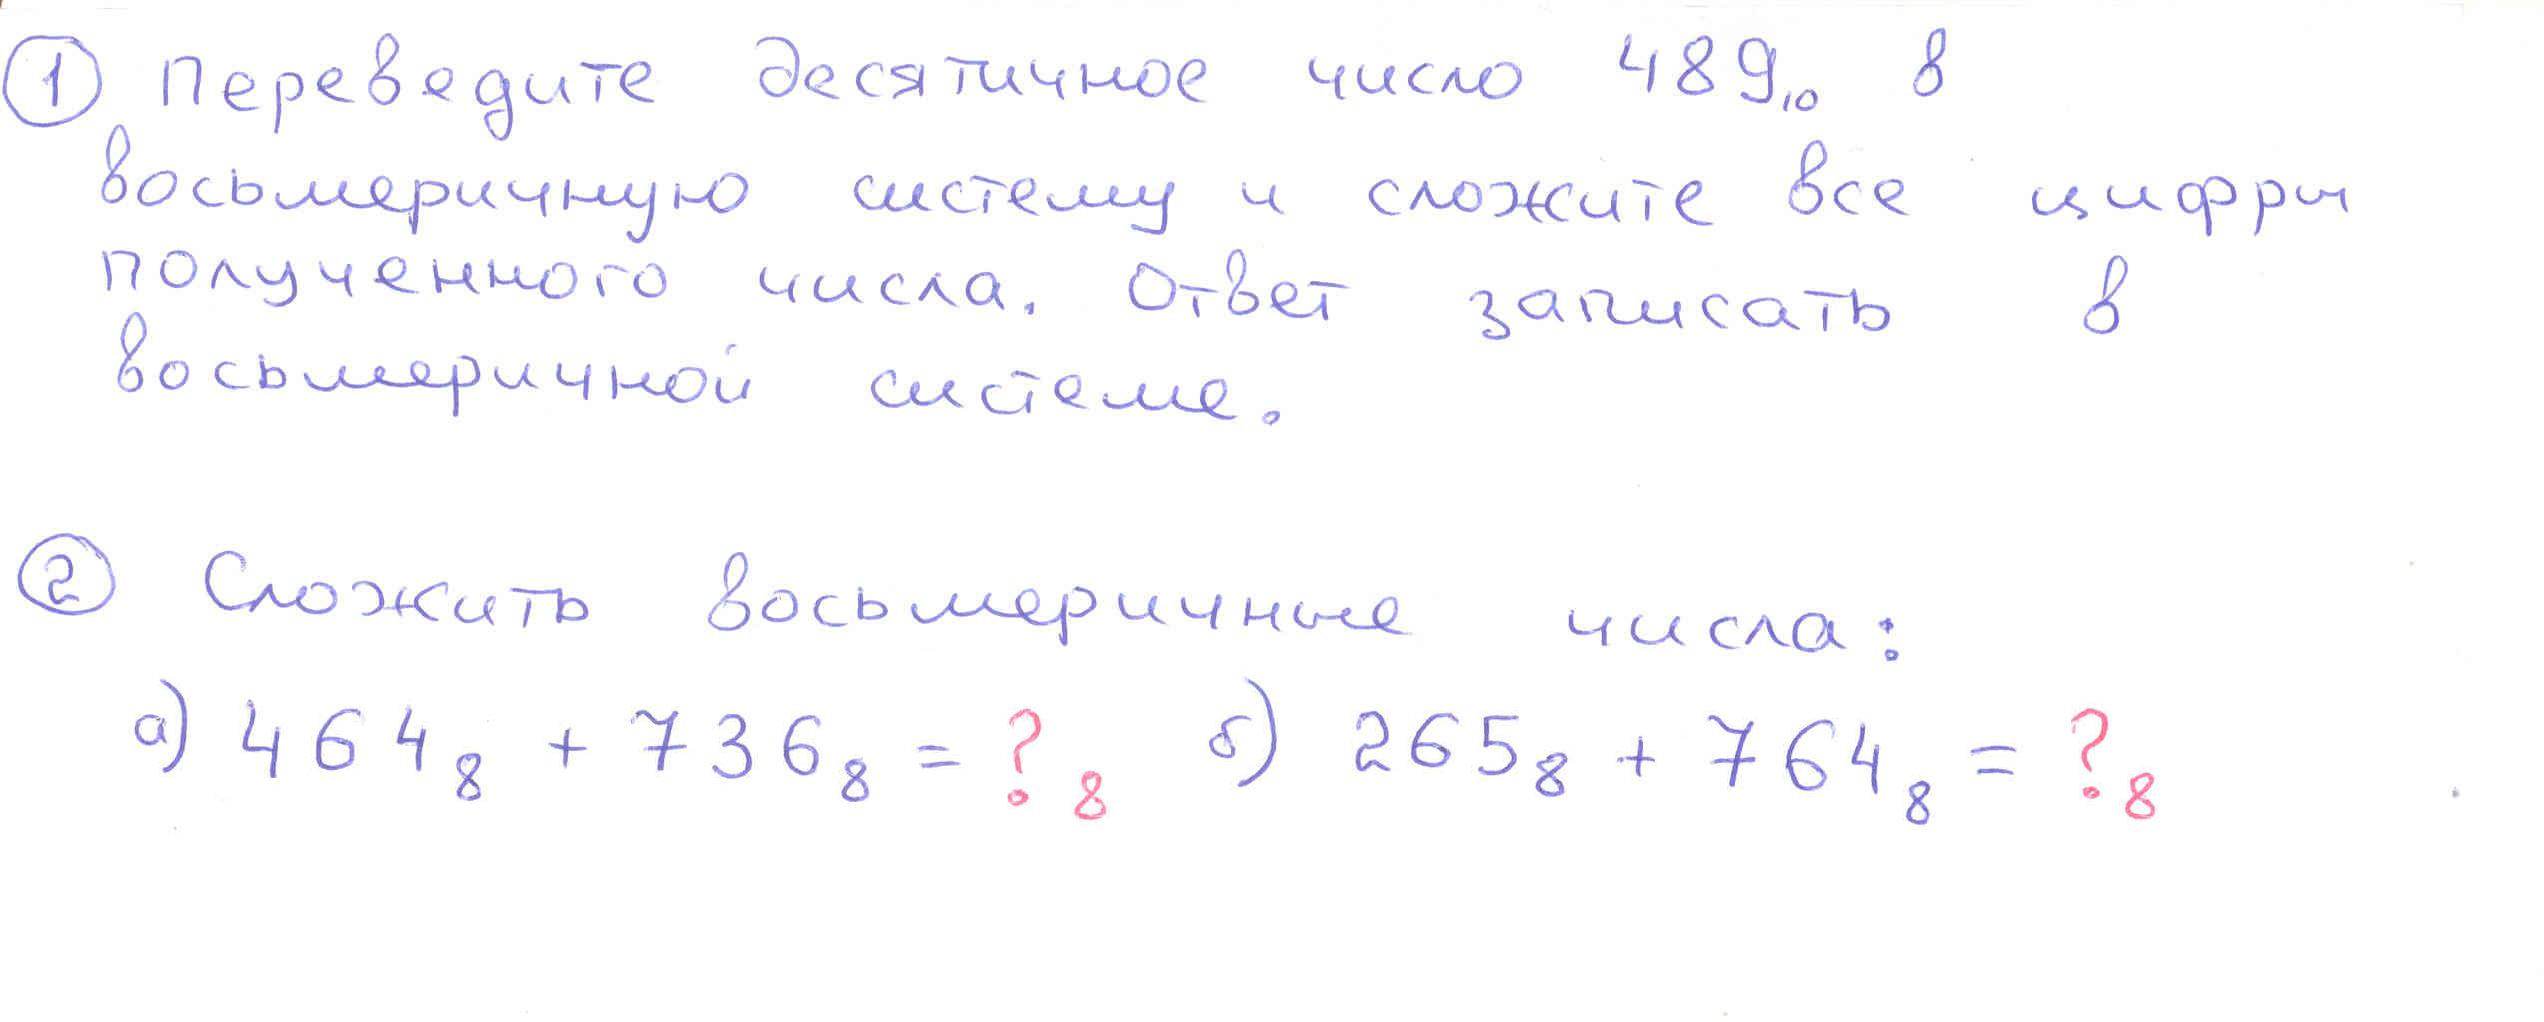 ① Переведите десятичное число 489₁₀ в
восьмеричную систему и сложите все цифры
полученного числа. Ответ записать в
восьмеричной системе.
② Сложить восьмеричные числа:
а) 464₈ + 736₈ = ?₈ б) 265₈ + 764₈ = ?₈